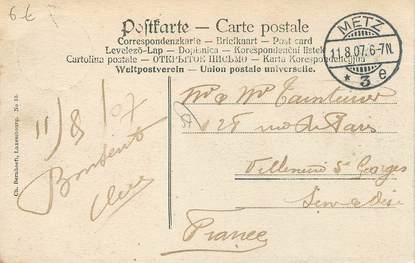 6 €
Postkarte — Carte postale
Correspondenzkarte — Briefkaart — Post card
Levelező-Lap — Dopisnica — Korespondenční lístek
Cartolina postale — ОТКРЫТОЕ ПИСЬМО — Karta Korespondencyjna
Weltpostverein — Union postale universelle.
METZ
11.8.07. 6-7N.
* 3 e
11/8 07
Ch. Bernhoeft, Luxembourg. No.
Mr & Me
125 rue de Paris
Villeneuve St Georges
Seine & Oise
France